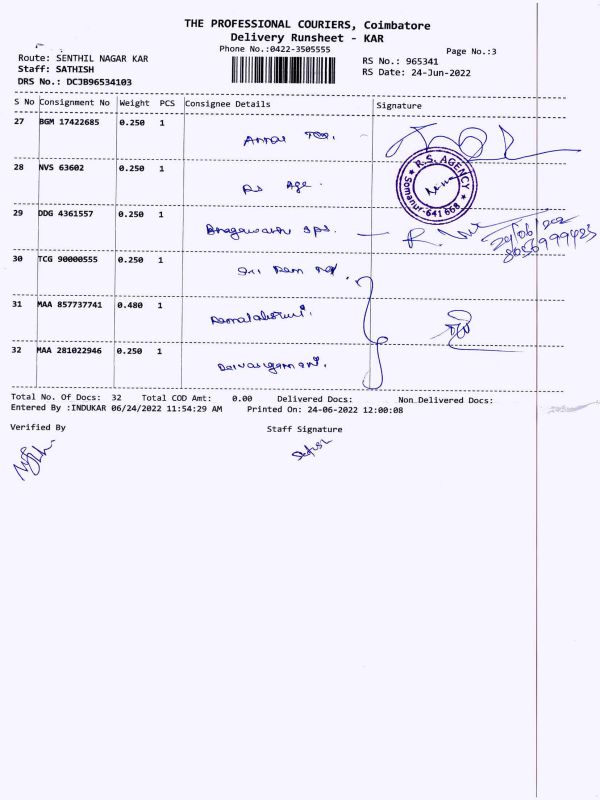 THE PROFESSIONAL COURIERS, Coimbatore
Delivery Runsheet - KAR
Phone No.:0422-3505555
Page No.:3
Route: SENTHIL NAGAR KAR
RS No.: 965341
Staff: SATHISH
RS Date: 24-Jun-2022
DRS No.: DCJB96534103
S No Consignment No Weight PCS Consignee Details Signature
27 BGM 17422685 0.250 1
28 NVS 63602 0.250 1
Rs Age.
R.S. AGENCY
Somanur-641 668
29 DDG 4361557 0.250 1
24/06/202
8056999423
30 TCG 90000555 0.250 1
Sri Ram
31 MAA 857737741 0.480 1
32 MAA 281022946 0.250 1
Total No. Of Docs: 32 Total COD Amt: 0.00 Delivered Docs: Non Delivered Docs:
Entered By :INDUKAR 06/24/2022 11:54:29 AM Printed On: 24-06-2022 12:00:08
Verified By Staff Signature